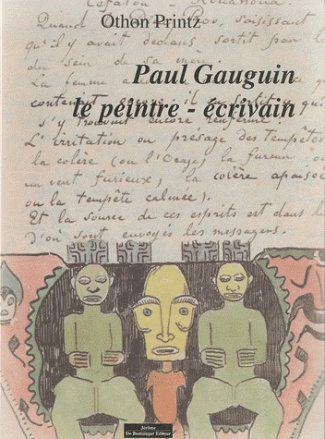 Othon Printz
Quand
qu'il y avait dedans, sortit par le
du sein de sa mère
Paul Gauguin
le peintre - écrivain
La femme
contenait
s'y encore renfermé
L'irritation ou présage des Tempêtes
la colère (ou l'Orage) la fureur ou
un vent furieux, la colère apaisée
ou la tempête calmée).
Et la source de ces esprits est dans le
d'où sont envoyés les messagers.
Jérôme
Do Bentzinger Editeur